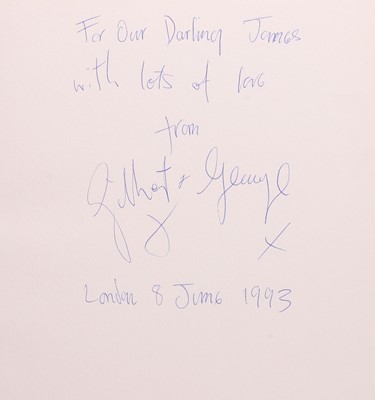 For Our Darling James
with lots of love
from
Gilbert + George
x x
London 8 June 1993